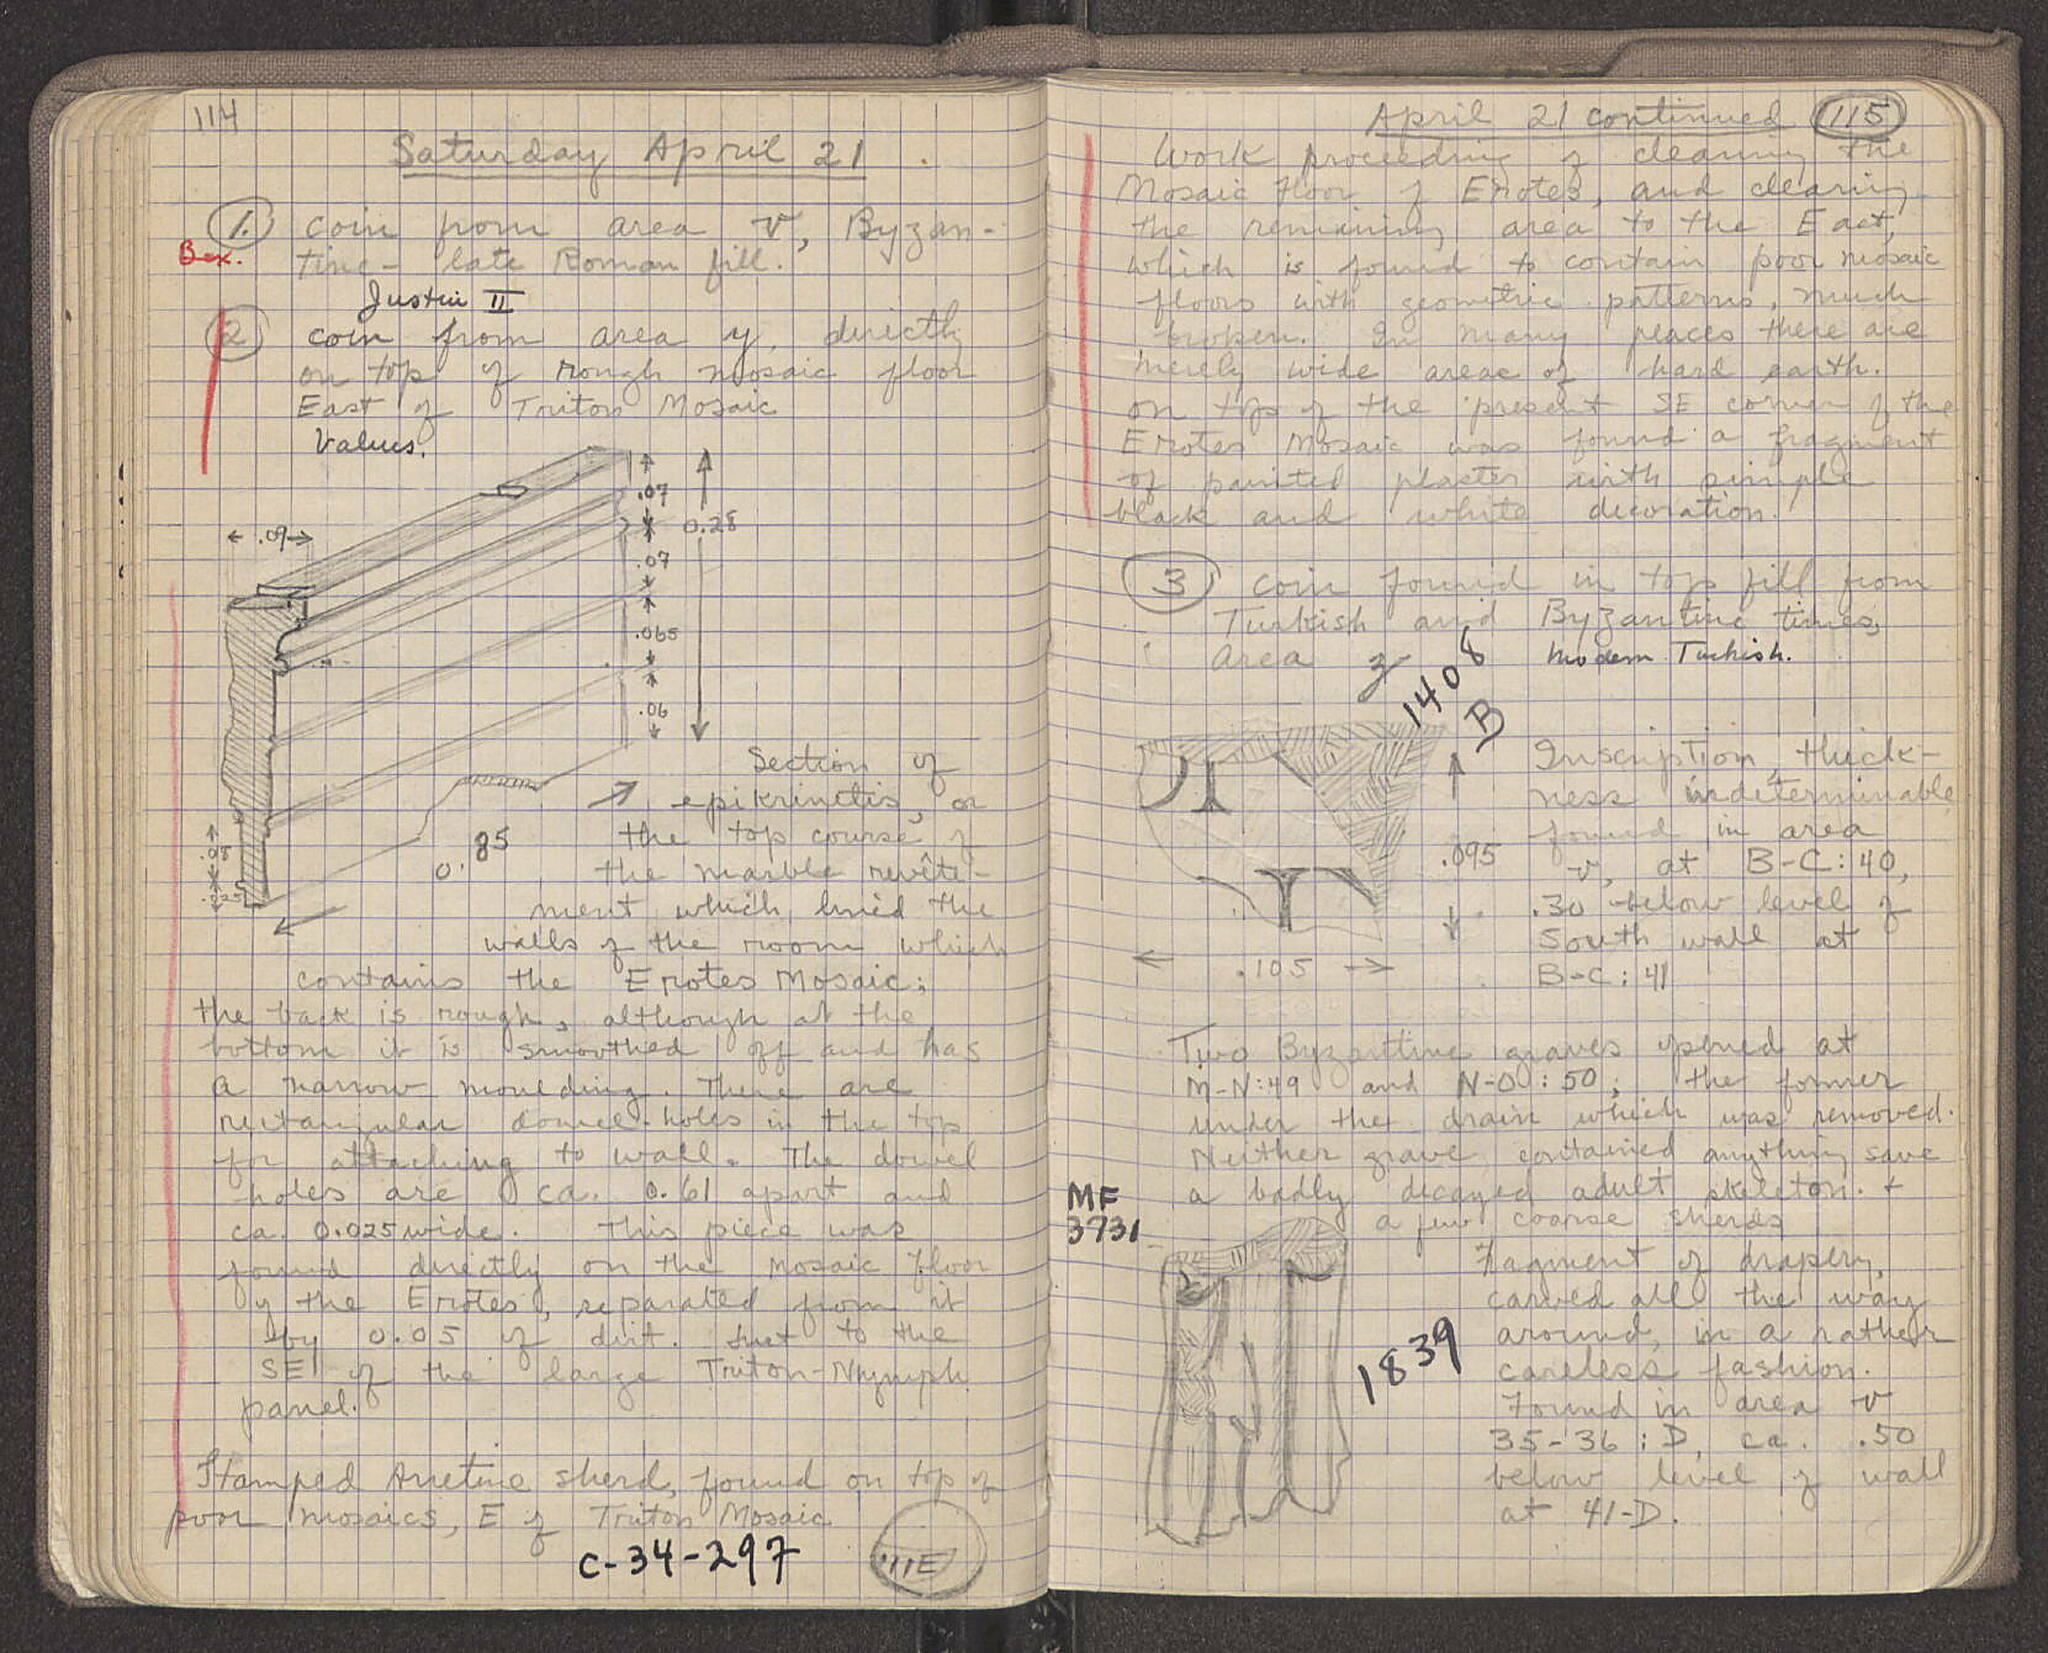 114
Saturday April 21
1. coin from area v, Byzan-
Bex. tine - late Roman fill.
Justin II
2 coin from area y, directly
on top of rough mosaic floor
East of Triton Mosaic
Values.
.07
0.28
.09
.07
.065
.06
Section of
epikrinetis, or
0.85 the top course of
.08 the marble revête-
.025 ment which lined the
walls of the room which
contains the Erotes Mosaic;
the back is rough, although at the
bottom it is smoothed off and has
a narrow moulding. There are
rectangular dowel-holes in the top
for attaching to wall. The dowel
holes are ca. 0.61 apart and
ca. 0.025 wide. This piece was
found directly on the Mosaic Floor
of the Erotes, separated from it
by 0.05 of dirt. Just to the
SE of the large Triton-Nymph
panel.
Stamped Arretine sherd, found on top of
poor mosaics, E of Triton Mosaic
C-34-297
April 21 continued 115
Work proceeding of cleaning the
Mosaic Floor of Erotes, and clearing
the remaining area to the East,
which is found to contain poor mosaic
floors with geometric patterns, much
broken. In many places there are
merely wide areas of hard earth.
on top of the present SE corner of the
Erotes Mosaic was found a fragment
of painted plaster with simple
black and white decoration.
3 coin found in top fill from
Turkish and Byzantine times,
area z Modern Turkish.
1408
B
Inscription, thick-
ness indeterminable
found in area
.095 v, at B-C:40,
.30 below level of
South wall at
.105 B-C:41
Two Byzantine graves opened at
M-N:49 and N-O:50; the former
under the drain which was removed.
Neither grave contained anything save
MF a badly decayed adult skeleton. +
3731 a few coarse sherds
Fragment of drapery,
carved all the way
around, in a rather
1839 careless fashion.
Found in area v
35-36:D, ca. .50
below level of wall
at 41-D.